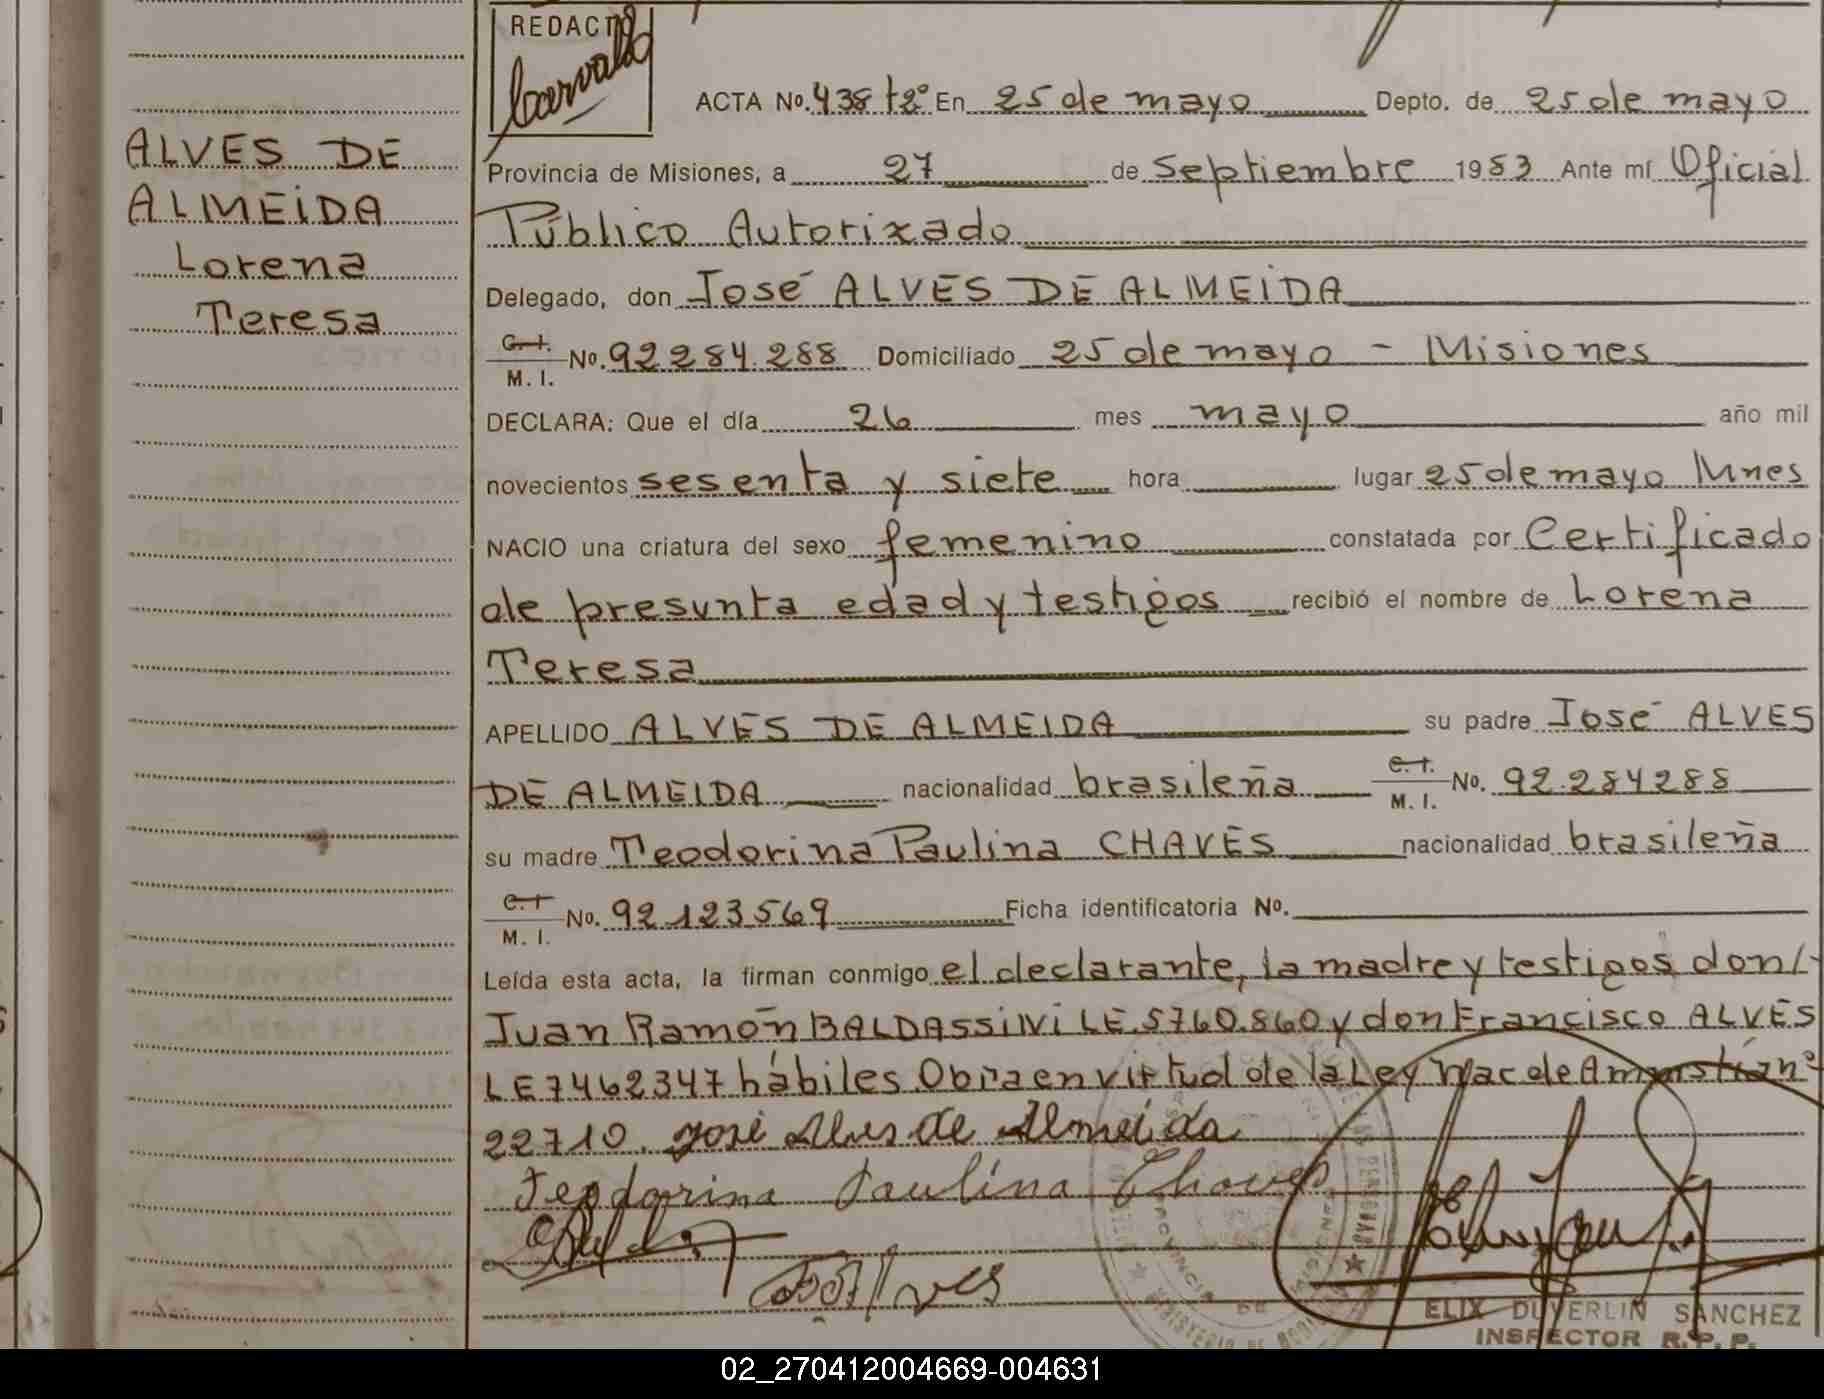 REDACTO
Carvallo
ACTA No. 438 tº2º En 25 de mayo Depto. de 25 de mayo
ALVES DE
ALMEIDA
Lorena
Teresa
Provincia de Misiones, a 27 de Septiembre 1983 Ante mí Oficial
Público Autorizado
Delegado, don José ALVES DE ALMEIDA
C. I.
M. I. No. 92 284.288 Domiciliado 25 de mayo - Misiones
DECLARA: Que el día 26 mes mayo año mil
novecientos sesenta y siete hora lugar 25 de mayo Mnes
NACIO una criatura del sexo femenino constatada por Certificado
de presunta edad y testigos recibió el nombre de Lorena
Teresa
APELLIDO ALVES DE ALMEIDA su padre José ALVES
DE ALMEIDA nacionalidad brasileña C. I. M. I. No. 92.284288
su madre Teodorina Paulina CHAVES nacionalidad brasileña
C. I. M. I. No. 92 123569 Ficha identificatoria No.
Leída esta acta, la firman conmigo el declarante, la madre y testigos don
Juan Ramón BALDASSINI LE 5760.860 y don Francisco ALVES
LE 7462347 hábiles Obra en virtud de la Ley Nac de Amnistía nº
22710. José Alves de Almeida
Teodorina Paulina Chaves
Alves
ELIX DUVERLIN SANCHEZ
INSPECTOR R. P. P.
02_270412004669-004631